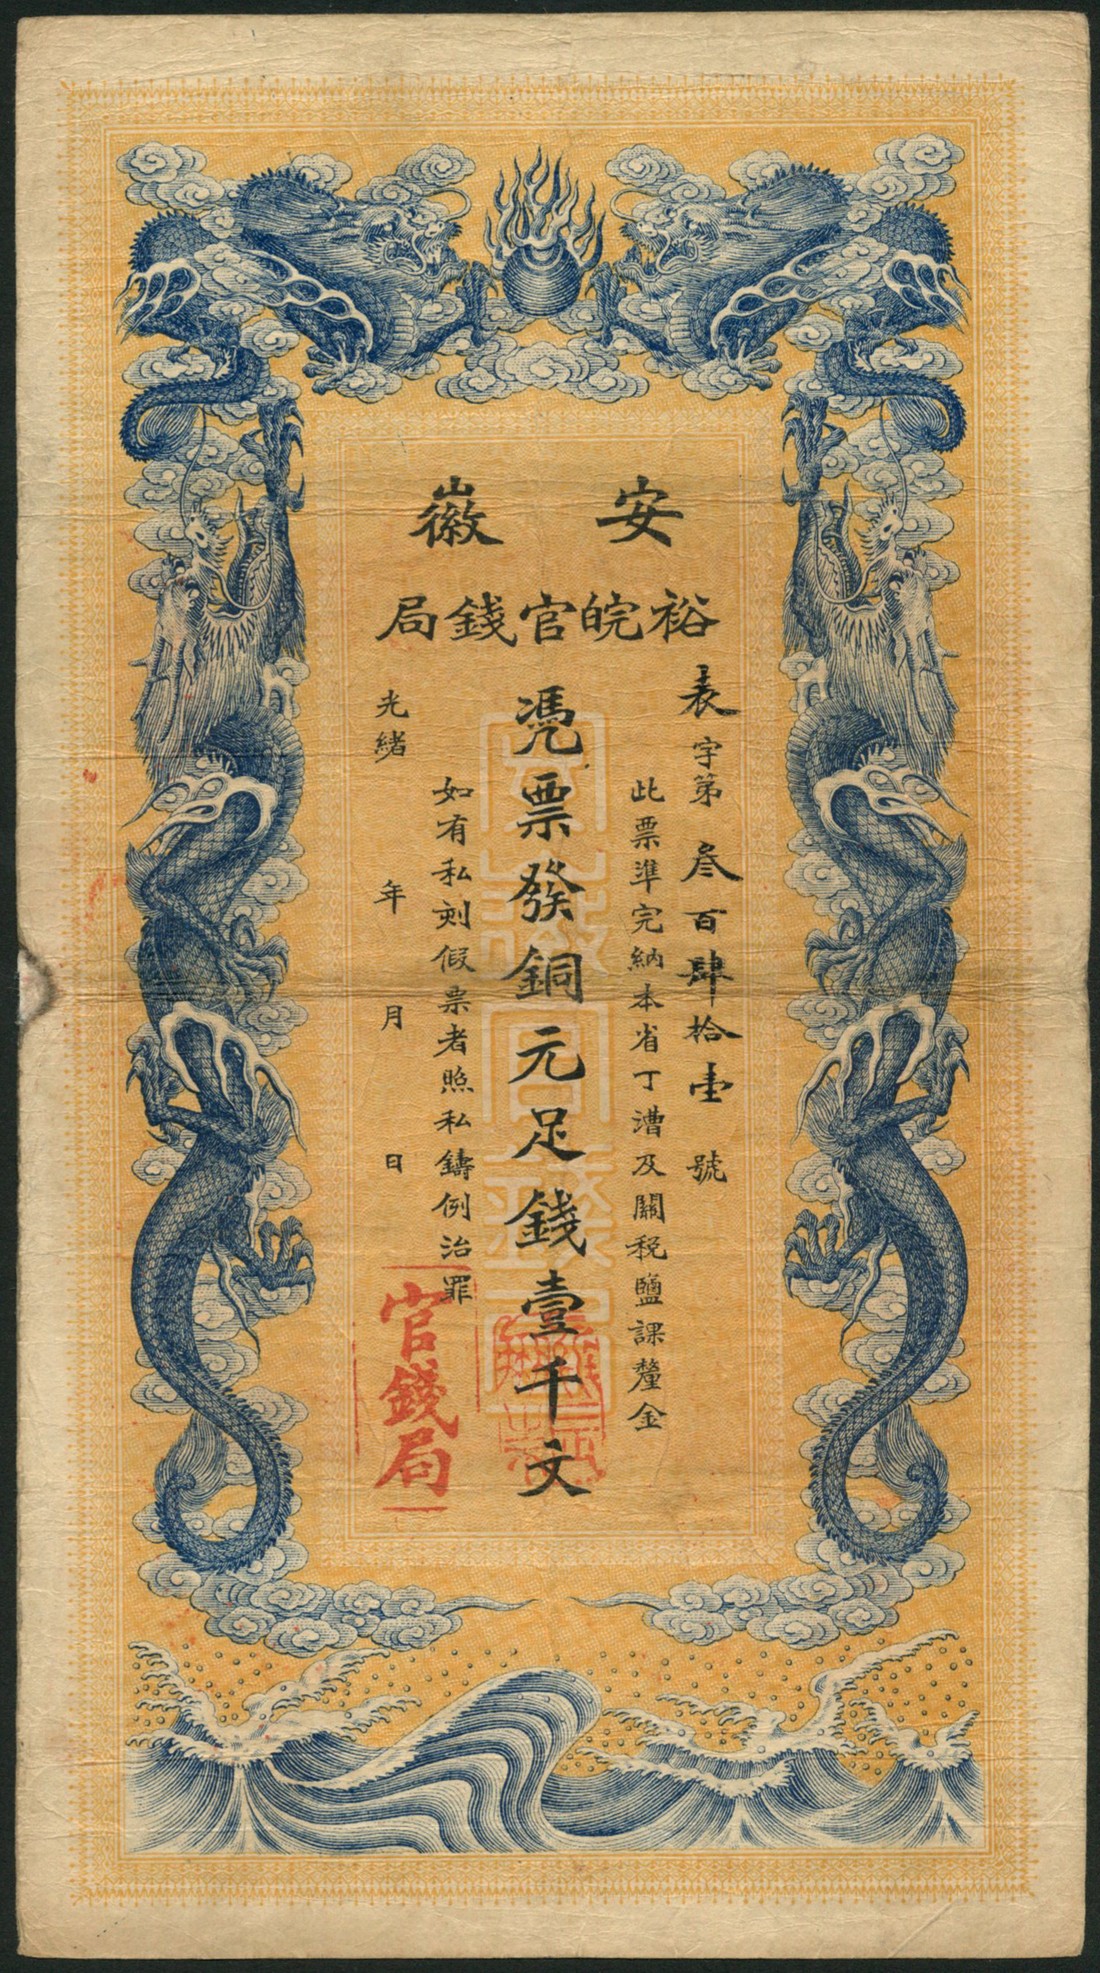 安徽
裕皖官錢局
表字第叄百肆拾壹號
此票準完納本省丁漕及關税鹽課釐金
憑票發銅元足錢壹千文
如有私刻假票者照私鑄例治罪
光緒年月日
官錢局
安徽官錢局